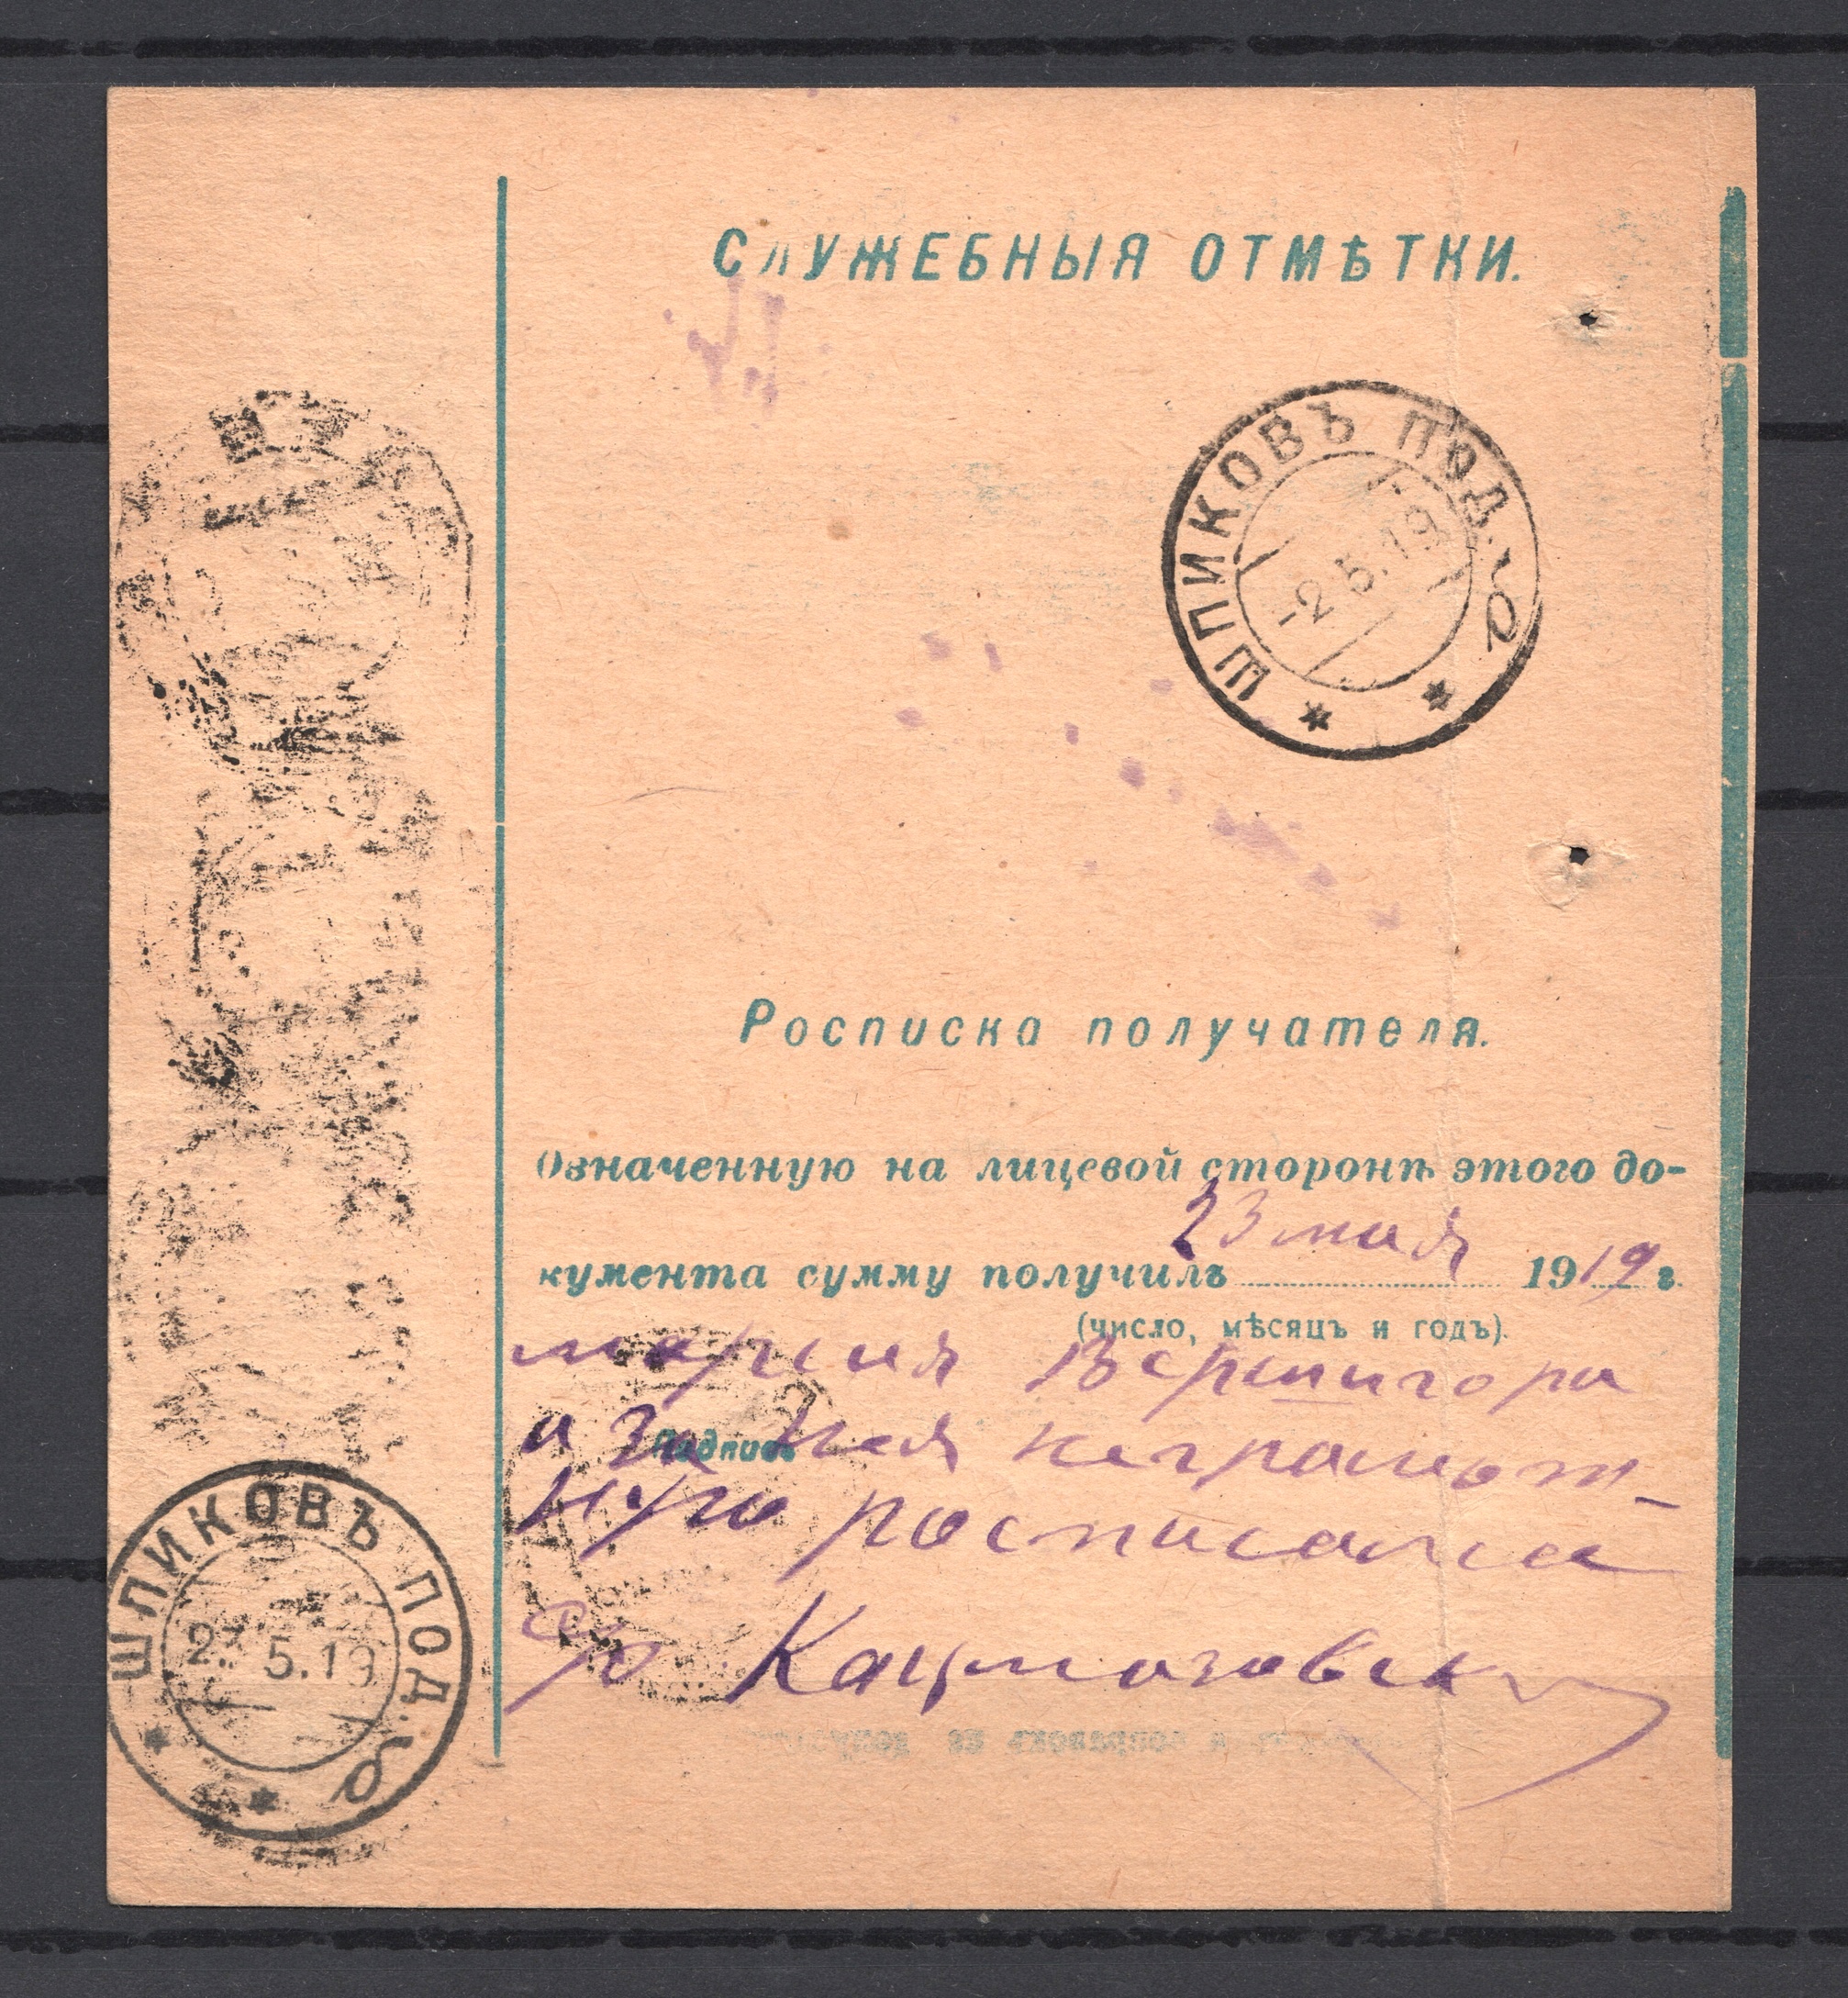 СЛУЖЕБНЫЯ ОТМѢТКИ.
ШПИКОВЪ ПОД. а
-2.5.19
Росписка получателя.
Означенную на лицевой сторонѣ этого до-
кумента сумму получилъ 23 мая 1919 г.
(число, мѣсяцъ и годъ).
мария Вершигора
Подпись
а за нея неграмот-
ную росписался
ШПИКОВЪ ПОД. а
2. 5.19